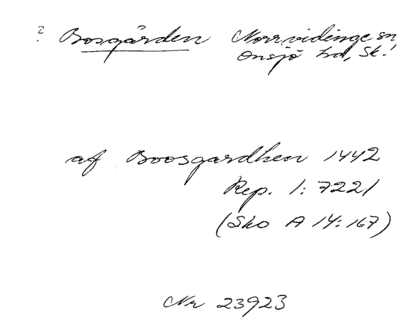 ? Bosgården Norrvidinge sn
Onsjö hd, Sk.!
af Boosgardhen 1442
Rep. 1: 7221
(Sko A 14: 167)
Nr 23923